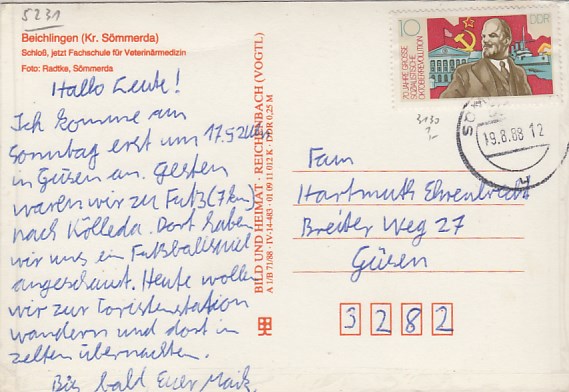 5231
Beichlingen (Kr. Sömmerda)
Schloß, jetzt Fachschule für Veterinärmedizin
Foto: Radtke, Sömmerda
Hallo Leute!
Ich komme am
Sonntag erst um 17.52 Uhr
in Güsen an. Gestern
waren wir zu Fuß (7 km)
nach Kölleda. Dort haben
wir uns ein Fußballspiel
angeschaut. Heute wollen
wir zur Toristenstation
wandern und dort in
zelten übernachten.
Bis bald Euer Maik.
BILD UND HEIMAT · REICHENBACH (VOGTL)
A 1/B 71/88 · IV-14-483 · 01 09 11 012 K · DDR 0,25 M
10
DDR
70 JAHRE GROSSE
SOZIALISTISCHE
OKTOBERREVOLUTION
3130
19.8.88 12
Fam
Hartmuth Ehrenbrecht
Breiter Weg 27
Güsen
3282